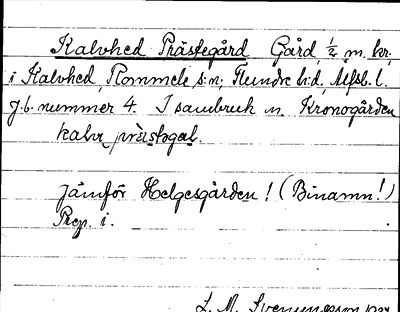 Kalvhed Prästegård Gård, 1/2 m. kr.
i Kalvhed, Rommele s:n, Flundre h:d, Älfsb. l.
J.b. nummer 4. I sambruk m. Kronogården
Jämför Helgesgården! (Binamn!)
Prep. i.
L. M. Svenungsson